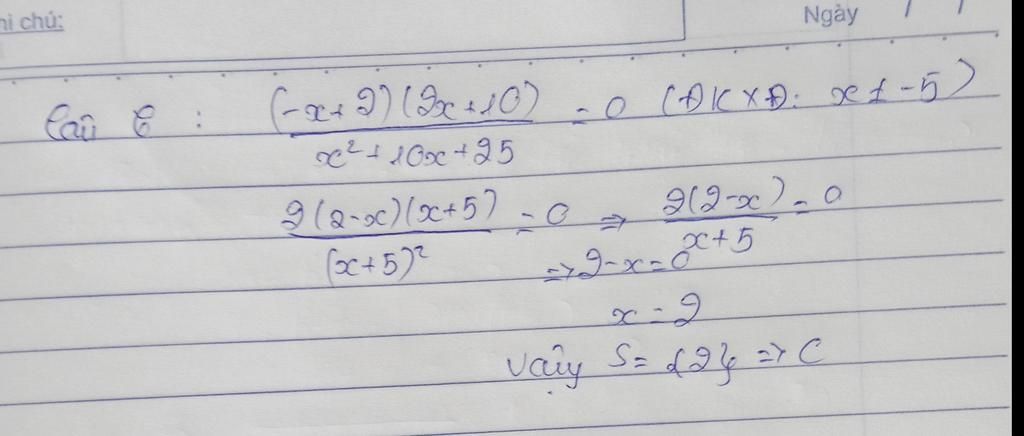 hi chú:
Ngày / /
Câu 6 : (-x+2)(2x+10) / x²+10x+25 = 0 (ĐKXĐ: x ≠ -5)
2(2-x)(x+5) / (x+5)² = 0 => 2(2-x) / x+5 = 0
=> 2-x=0
x = 2
Vậy S = {2} => C